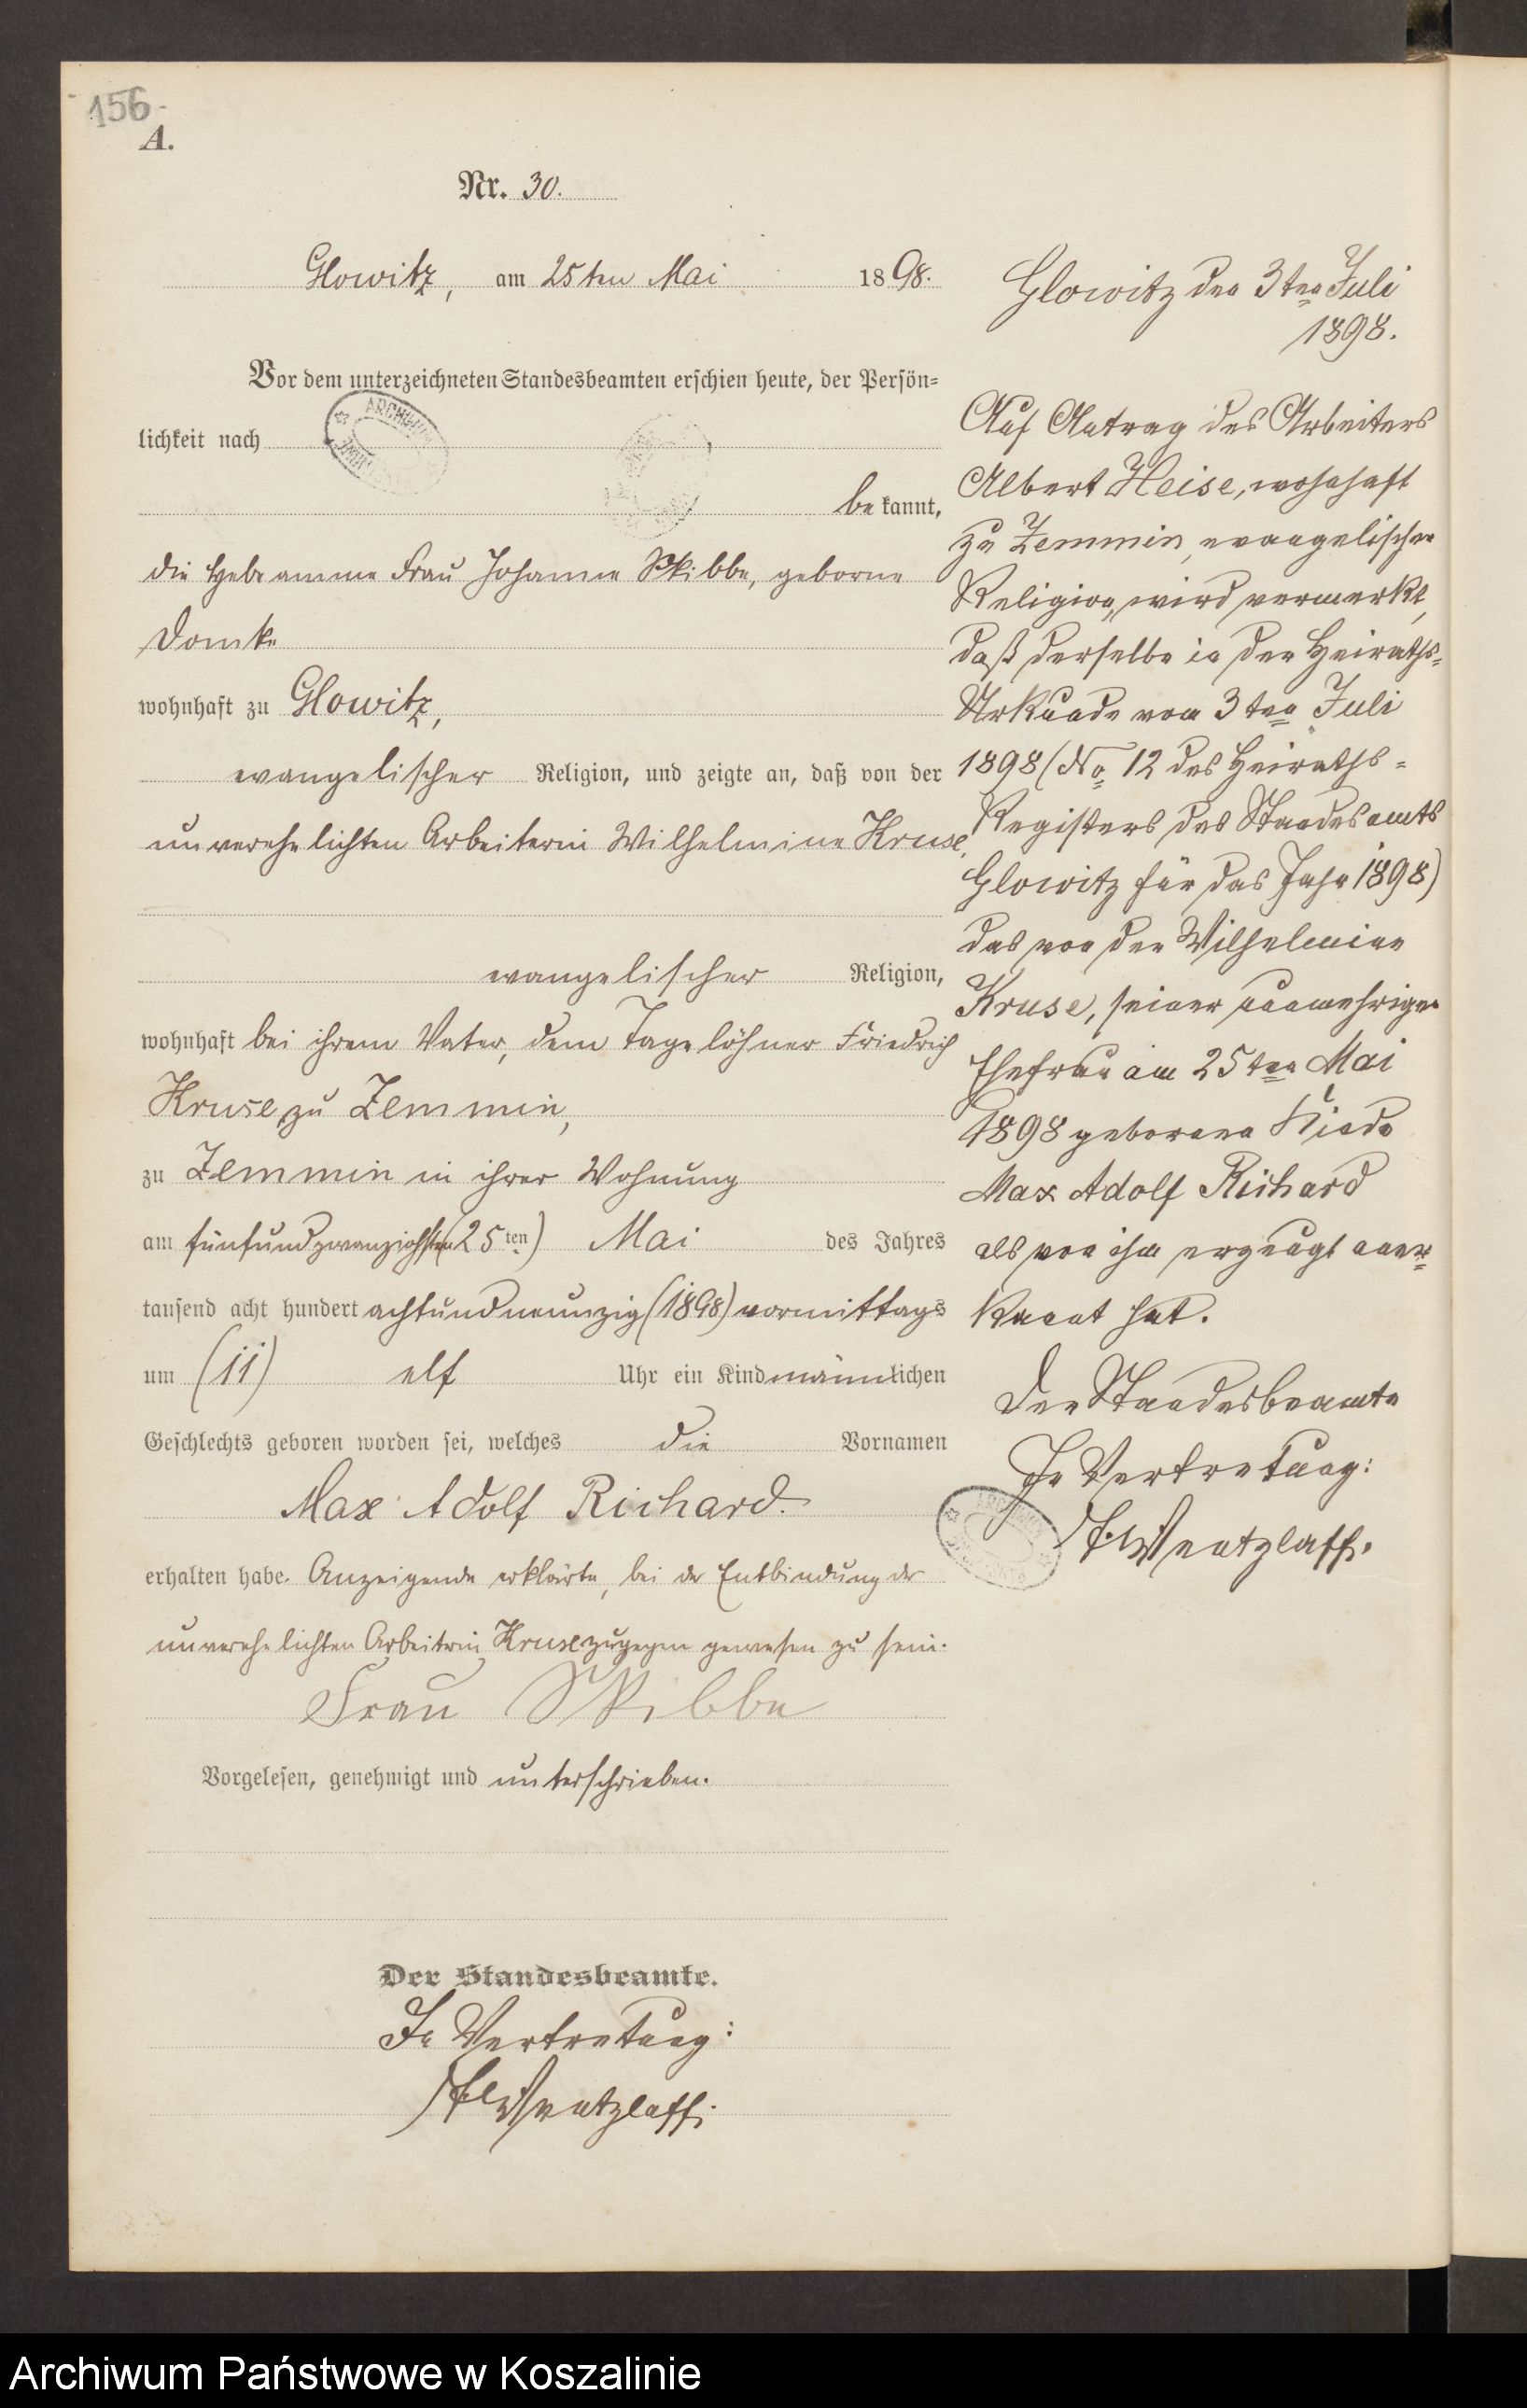 156.
A.
Nr. 30.
Glowitz, am 25ten Mai 1898.
Vor dem unterzeichneten Standesbeamten erschien heute, der Persön=
lichkeit nach
be kannt,
die Hebeamme Frau Johanne Skibbe, geborne
Domke
wohnhaft zu Glowitz,
evangelischer Religion, und zeigte an, daß von der
unverehelichten Arbeiterin Wilhelmine Kruse,
evangelischer Religion,
wohnhaft bei ihrem Vater, dem Tagelöhner Friedrich
Kruse zu Zemmin,
zu Zemmin in ihrer Wohnung
am fünfundzwanzigsten (25ten) Mai des Jahres
tausend acht hundert achtundneunzig (1898) vormittags
um (11) elf Uhr ein Kind männlichen
Geschlechts geboren worden sei, welches die Vornamen
Max Adolf Richard.
erhalten habe. Anzeigende erklärte, bei der Entbindung der
unverehelichten Arbeiterin Kruse zugegen gewesen zu sein.
Frau Skibbe
Vorgelesen, genehmigt und unterschrieben.
Der Standesbeamte.
In Vertretung:
Wentzlaff.
Glowitz den 3ten Juli
1898.
Auf Antrag des Arbeiters
Albert Heise, wohnhaft
zu Zemmin, evangelischer
Religion, wird vermerkt,
daß derselbe in der Heiraths=
Urkunde vom 3ten Juli
1898 (No 12 des Heiraths=
Registers des Standesamts
Glowitz für das Jahr 1898)
das von der Wilhelmine
Kruse, seiner nunmehrigen
Ehefrau am 25ten Mai
1898 geborene Kind
Max Adolf Richard
als von ihm erzeugt aner=
kannt hat.
Der Standesbeamte
In Vertretung:
Wentzlaff.
Archiwum Państwowe w Koszalinie